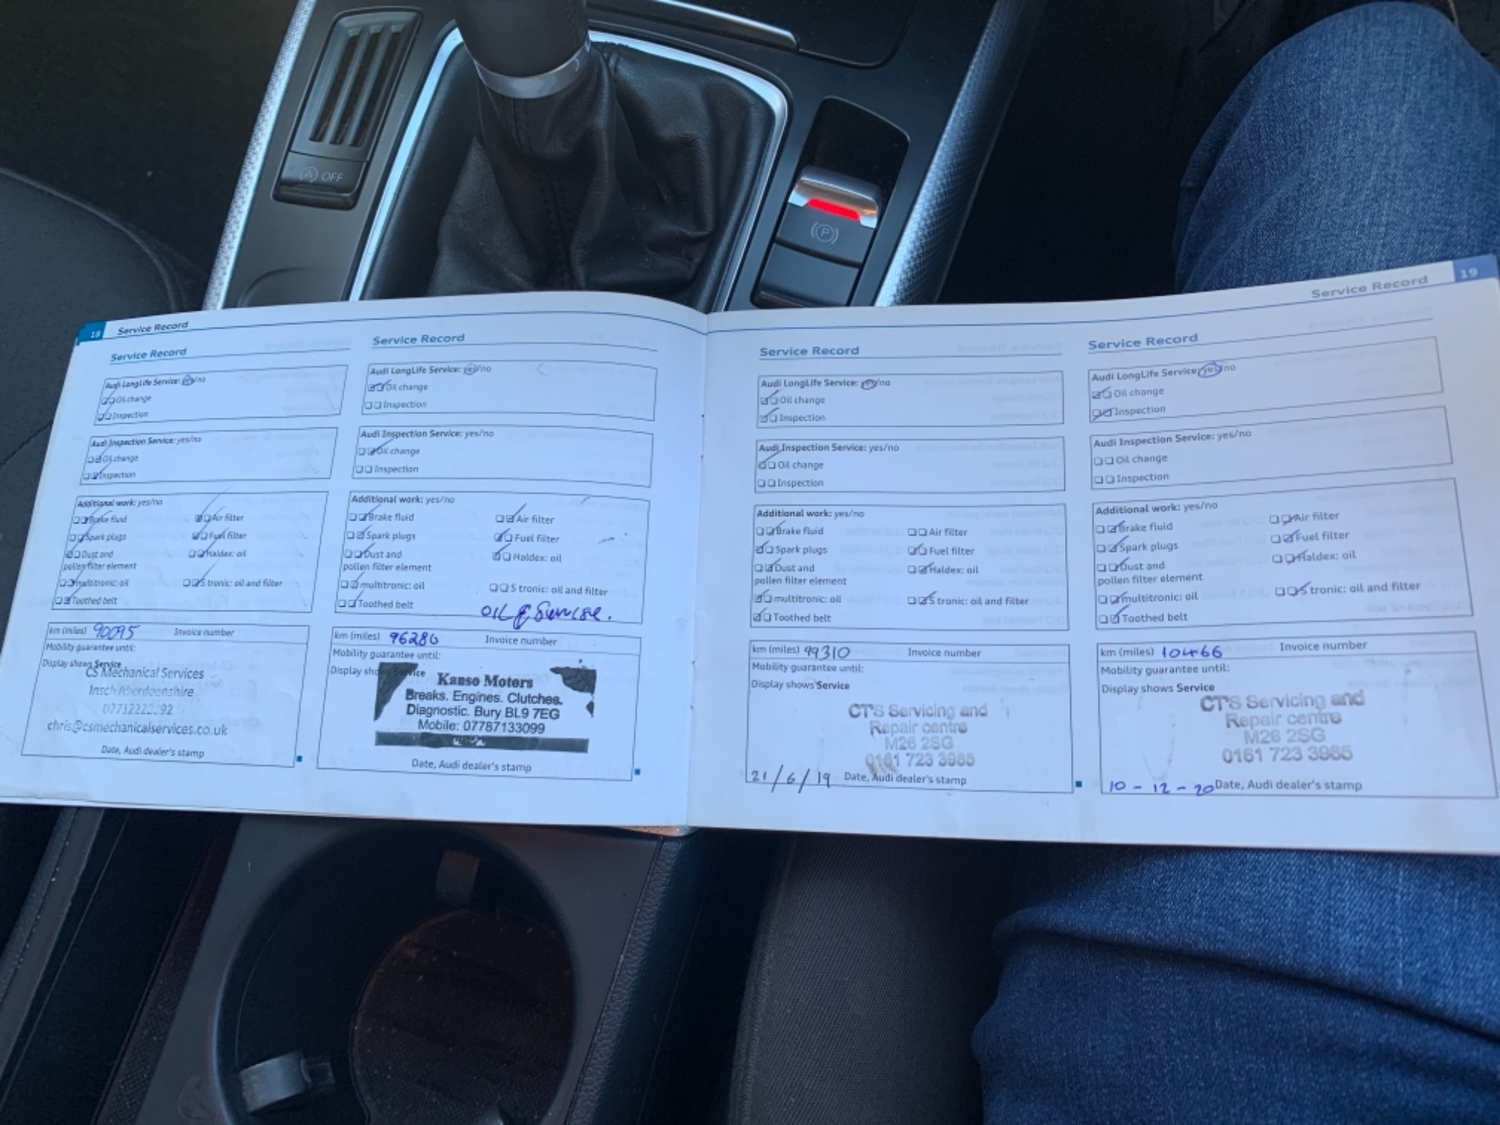 OFF
P
18 Service Record
Service Record
Audi LongLife Service: yes/no
Oil change
Inspection
Audi Inspection Service: yes/no
Oil change
Inspection
Additional work: yes/no
Brake fluid
Air filter
Spark plugs
Fuel filter
Dust and
pollen filter element
Haldex: oil
multitronic: oil
S tronic: oil and filter
Toothed belt
km (miles) 90095 Invoice number
Mobility guarantee until:
Display shows Service
CS Mechanical Services
Insch Aberdeenshire
chris@csmechanicalservices.co.uk
Date, Audi dealer's stamp
Service Record
Audi LongLife Service: yes/no
Oil change
Inspection
Audi Inspection Service: yes/no
Oil change
Inspection
Additional work: yes/no
Brake fluid
Air filter
Spark plugs
Fuel filter
Dust and
pollen filter element
Haldex: oil
multitronic: oil
S tronic: oil and filter
Toothed belt
OIL & Service.
km (miles) 96280 Invoice number
Mobility guarantee until:
Display shows Service
Kanso Motors
Breaks. Engines. Clutches.
Diagnostic. Bury BL9 7EG
Mobile: 07787133099
Date, Audi dealer's stamp
Service Record 19
Service Record
Audi LongLife Service: yes/no
Oil change
Inspection
Audi Inspection Service: yes/no
Oil change
Inspection
Additional work: yes/no
Brake fluid
Air filter
Spark plugs
Fuel filter
Dust and
pollen filter element
Haldex: oil
multitronic: oil
S tronic: oil and filter
Toothed belt
km (miles) 99310 Invoice number
Mobility guarantee until:
Display shows Service
CTS Servicing and
Repair centre
M26 2SG
0161 723 3985
21/6/19 Date, Audi dealer's stamp
Service Record
Audi LongLife Service: yes/no
Oil change
Inspection
Audi Inspection Service: yes/no
Oil change
Inspection
Additional work: yes/no
Brake fluid
Air filter
Spark plugs
Fuel filter
Dust and
pollen filter element
Haldex: oil
multitronic: oil
S tronic: oil and filter
Toothed belt
km (miles) 10466 Invoice number
Mobility guarantee until:
Display shows Service
CTS Servicing and
Repair centre
M26 2SG
0161 723 3985
10-12-20 Date, Audi dealer's stamp